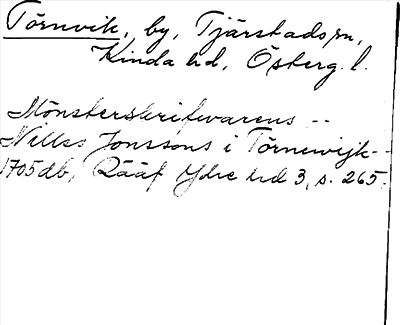 Törnvik, by, Tjärstads sn,
Kinda hd, Österg. l.
Mönsterskrifwarens --
Nilss Jonssons i Törnewijk --
1705 db, Rääf Ydre hd 3, s. 265.